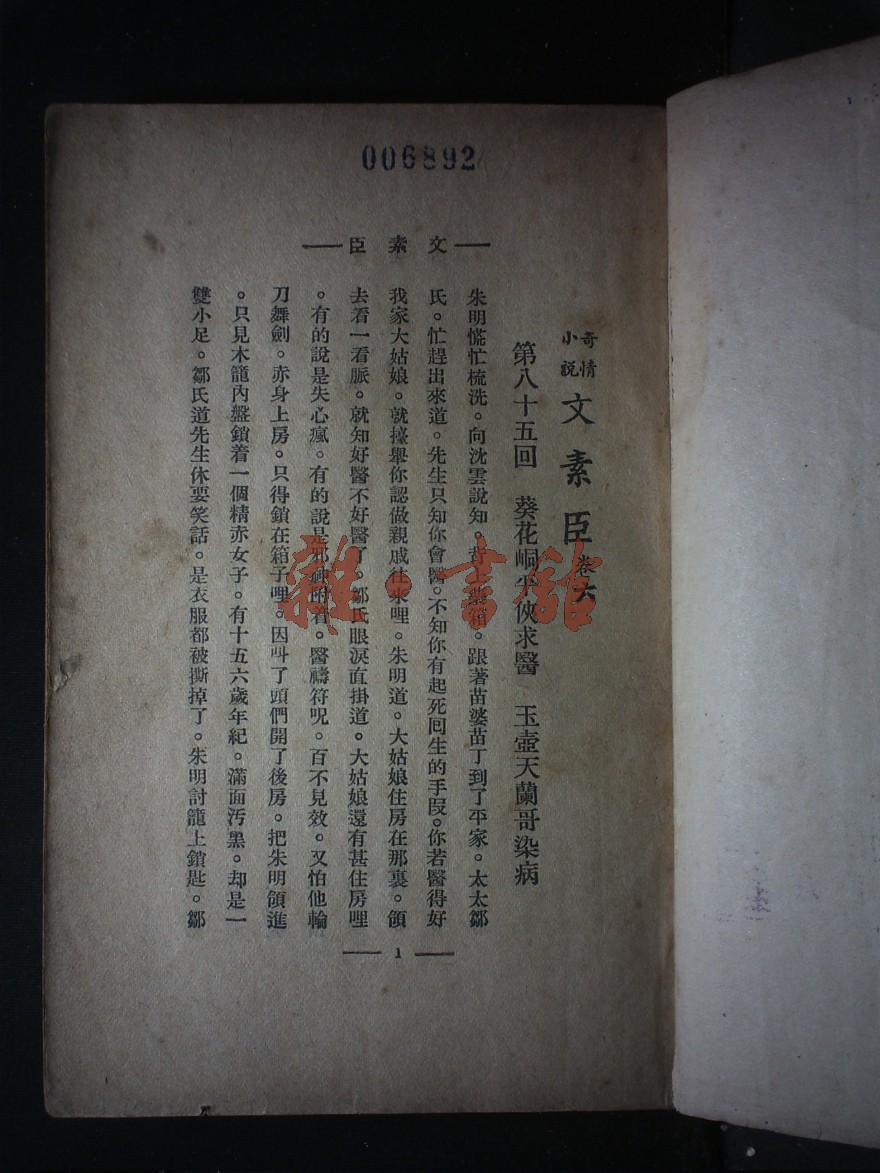 006892
文素臣
奇情小說 文素臣 卷六
第八十五回 葵花峒尖俠求醫 玉壺天蘭哥染病
朱明慌忙梳洗。向沈雲說知。背上藥箱。跟著苗婆苗丁到了平家。太太鄒
氏。忙趕出來道。先生只知你會醫。不知你有起死回生的手段。你若醫得好
我家大姑娘。就擡舉你認做親戚往來哩。朱明道。大姑娘住房在那裏。領
去看一看脈。就知好醫不好醫了。鄒氏眼淚直掛道。大姑娘還有甚住房哩
。有的說是失心瘋。有的說是邪神附着。醫禱符呪。百不見效。又怕他輪
刀舞劍。赤身上房。只得鎖在箱子哩。因叫了頭們開了後房。把朱明領進
。只見木籠內盤鎖着一個精赤女子。有十五六歲年紀。滿面汚黑。却是一
雙小足。鄒氏道先生休要笑話。是衣服都被撕掉了。朱明討籠上鎖匙。鄒
1
雜·書館